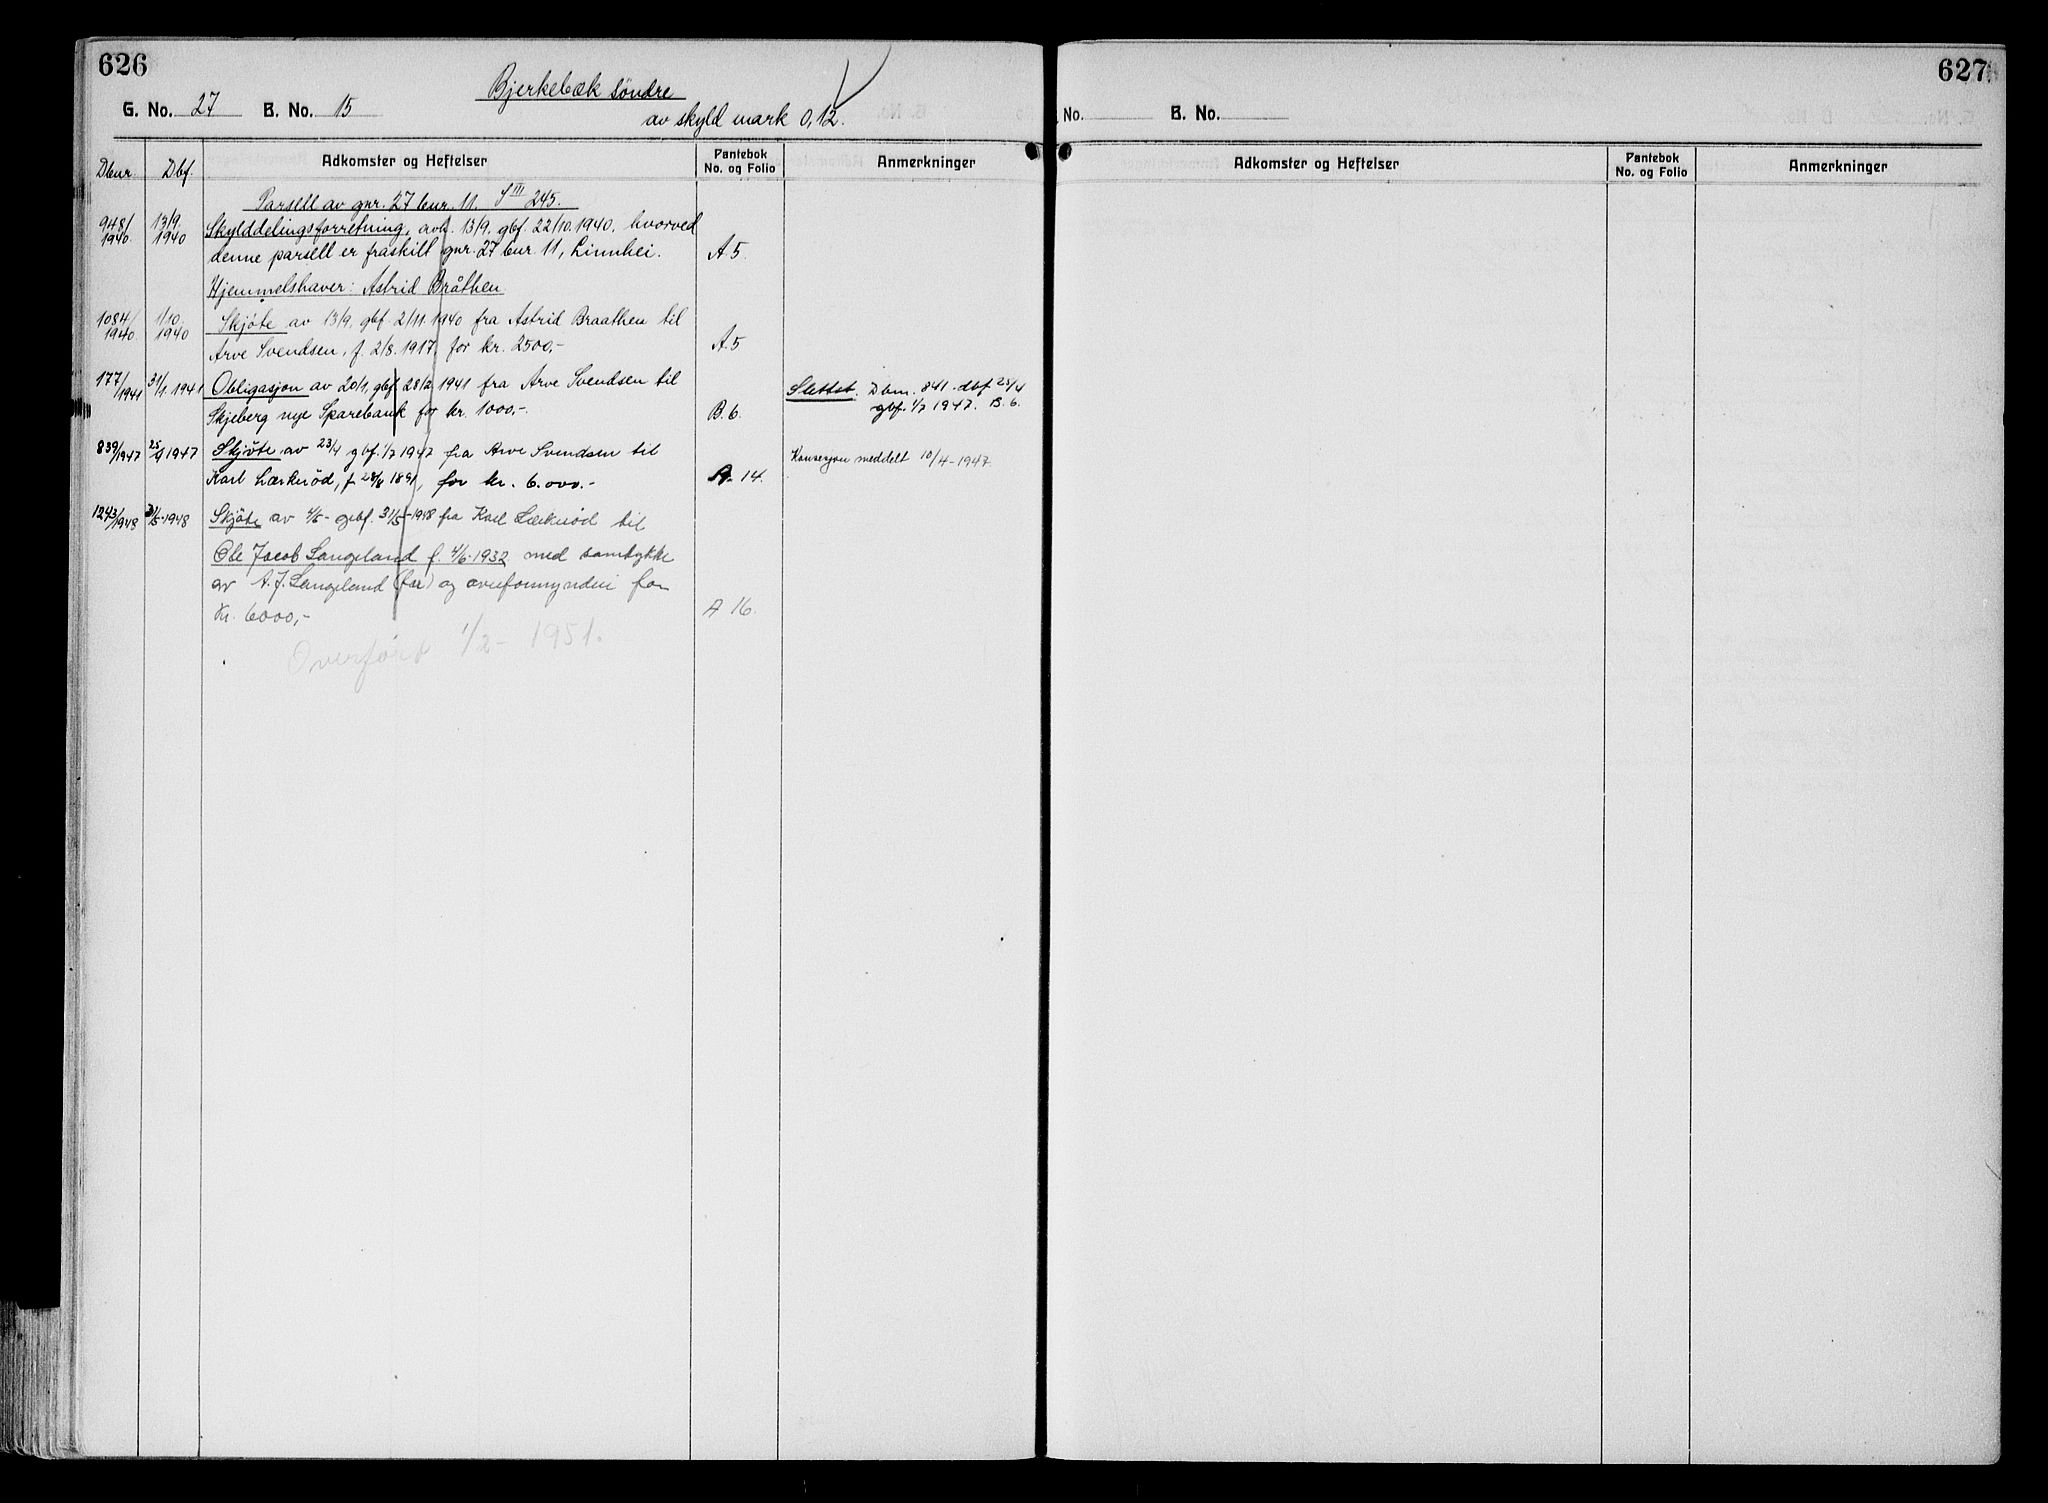 626
Bjerkebæk söndre
G. No. 27 B. No. 15
av skyld mark 0,12.
Dbnr Dbf. Adkomster og Heftelser Pantebok No. og Folio Anmerkninger
Parsell av gnr. 27 bnr. 11. S III 245.
948/1940 13/9 1940 Skylddelingsforretning, avh. 13/9, gbf. 22/10. 1940, hvorved
denne parsell er fraskilt gnr. 27 bnr. 11, Linnhei. A. 5.
Hjemmelshaver: Astrid Bråthen.
1084/1940 1/10 1940 Skjöte av 13/9, gbf. 2/11 1940 fra Astrid Braathen til
Arve Svendsen, f. 2/8. 1917, for kr. 2500,- A. 5
177/1941 31/1. 1941 Obligasjon av 20/1, gbf 28/2 1941 fra Arve Svendsen til
Skjeberg nye Sparebank for kr. 1000,- B. 6.
Slettet. Dbnr. 841 - dbf 25/4
gbf. 1/7 1947. B. 6.
839/1947 25/4 1947 Skjöte av 23/4 gbf. 1/7 1947 fra Arve Svendsen til
Karl Lærknöd, f. 1891, for kr. 6.000.- A. 14.
Konsesjon meddelt 10/4-1947
1243/1948 31/5-1948 Skjöte av 4/5- gbf. 31/5-1948 fra Karl Lærknöd til
Ole Jacob Langeland f. 4/6-1932 med samtykke
av A. J. Langeland (far) og overformynderi for
Kr. 6000,- A 16.
Overført 1/2-1951.
627
No. B. No.
Adkomster og Heftelser Pantebok No. og Folio Anmerkninger